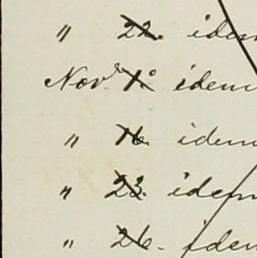 " 22. idem
Novr 1º idem
" 16. idem
" 23. idem
" 26. idem